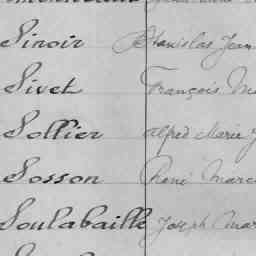 Sinoir Stanislas Jean
Sivet François
Sollier Alfred Marie
Sosson René Marc
Soulabaille Joseph Mar